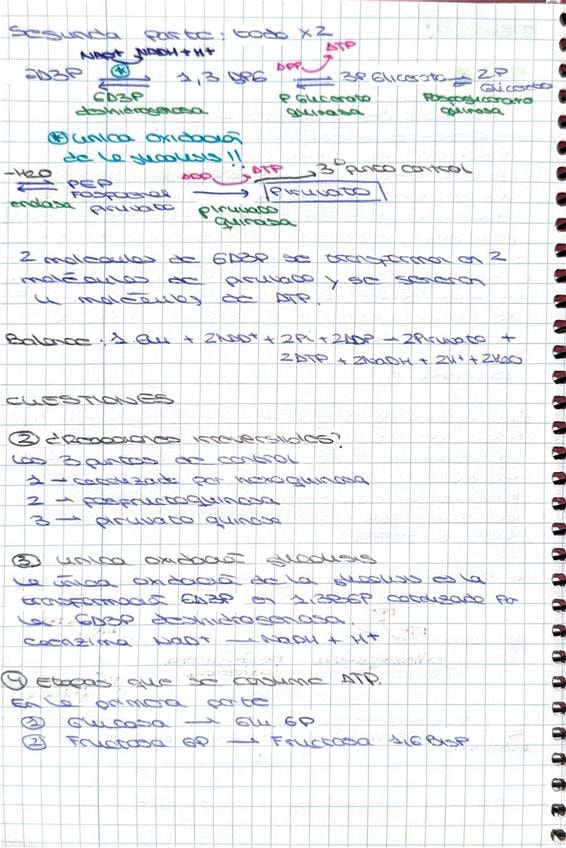 Segunda parte: todo x2
NAD+ NADH + H+ ADP ATP
GD3P 1,3 DPG 3P Glicerato 2P Glicerato
GD3P deshidrogenasa P Glicerato quinasa Fosfoglicerato quinasa
* única oxidació
de la glucolisis !!
-H2O PEP ADP ATP 3º punto control
enolasa Fosfoenol piruvato piruvato quinasa Piruvato
2 moléculas de GD3P se transforman en 2
moléculas de piruvato y se generan
4 moléculas de ATP.
Balance: 1 Glu + 2NAD+ + 2Pi + 2ADP → 2Piruvato +
2ATP + 2NADH + 2H+ + 2H2O
CUESTIONES
② ¿reacciones irreversibles?
Los 3 puntos de control
1 → catalizada por hexoquinasa
2 → fosfructoquinasa
3 → piruvato quinasa
③ única oxidació glucolisis
La única oxidació de la glucolisis es la
transformació GD3P en 1,3BPG catalizado por
la GD3P deshidrogenasa.
coenzima NAD+ → NADH + H+
④ Etapas que se consume ATP.
En la primera parte
① Glucosa → Glu 6P
② Fructosa 6P → Fructosa 1,6 BisP